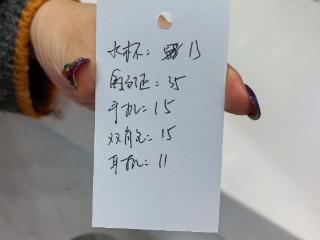 水杯： 13
身份证：35
手机：15
双肩包：15
耳机：11